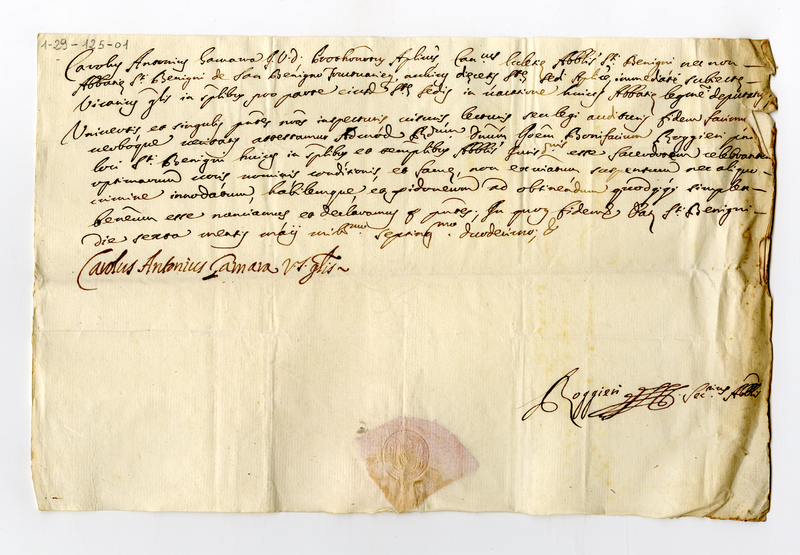 1-29-125-01
Carolus Antonius Zamara J.V.D. Prothonot Aplicus Can.cus Ecclesie Abblis Sti Benigni nec non
Abbatie Sti Benigni de San Benigno Fructuarien, nullius diecesis Ste Sedi Aplice immediate subiecte
Vicarius glis in splibus pro parte eiusd Ste Sedis in vacatione huius Abbatie legme deputatus
Universis et singulis pntes nras inspecturis visuris, lecturis seu legi audituris fidem facimus
verboque veritatis attestamur Admod Rdum Dnum Joem Bonifacium Roggieri pn
loci Sti Benigni huius in splibus et templibus Abblis Jurisnis esse sacerdotem celebrantem
optimarum vocis nominis conditionis et fame, non excicatum suspensum nec aliquo
crimine innodatum habilemque et idoneum ad obtinendum quodq simplex
beneum esse nunciamus et declaramus p pntes; In quor fidem Dat Sti Benigni
Die sexta mensis maij mill.mo septing.mo duodecimo; &
Carolus Antonius Zamara V.s glis
Roggieri Sec.rius Abblis